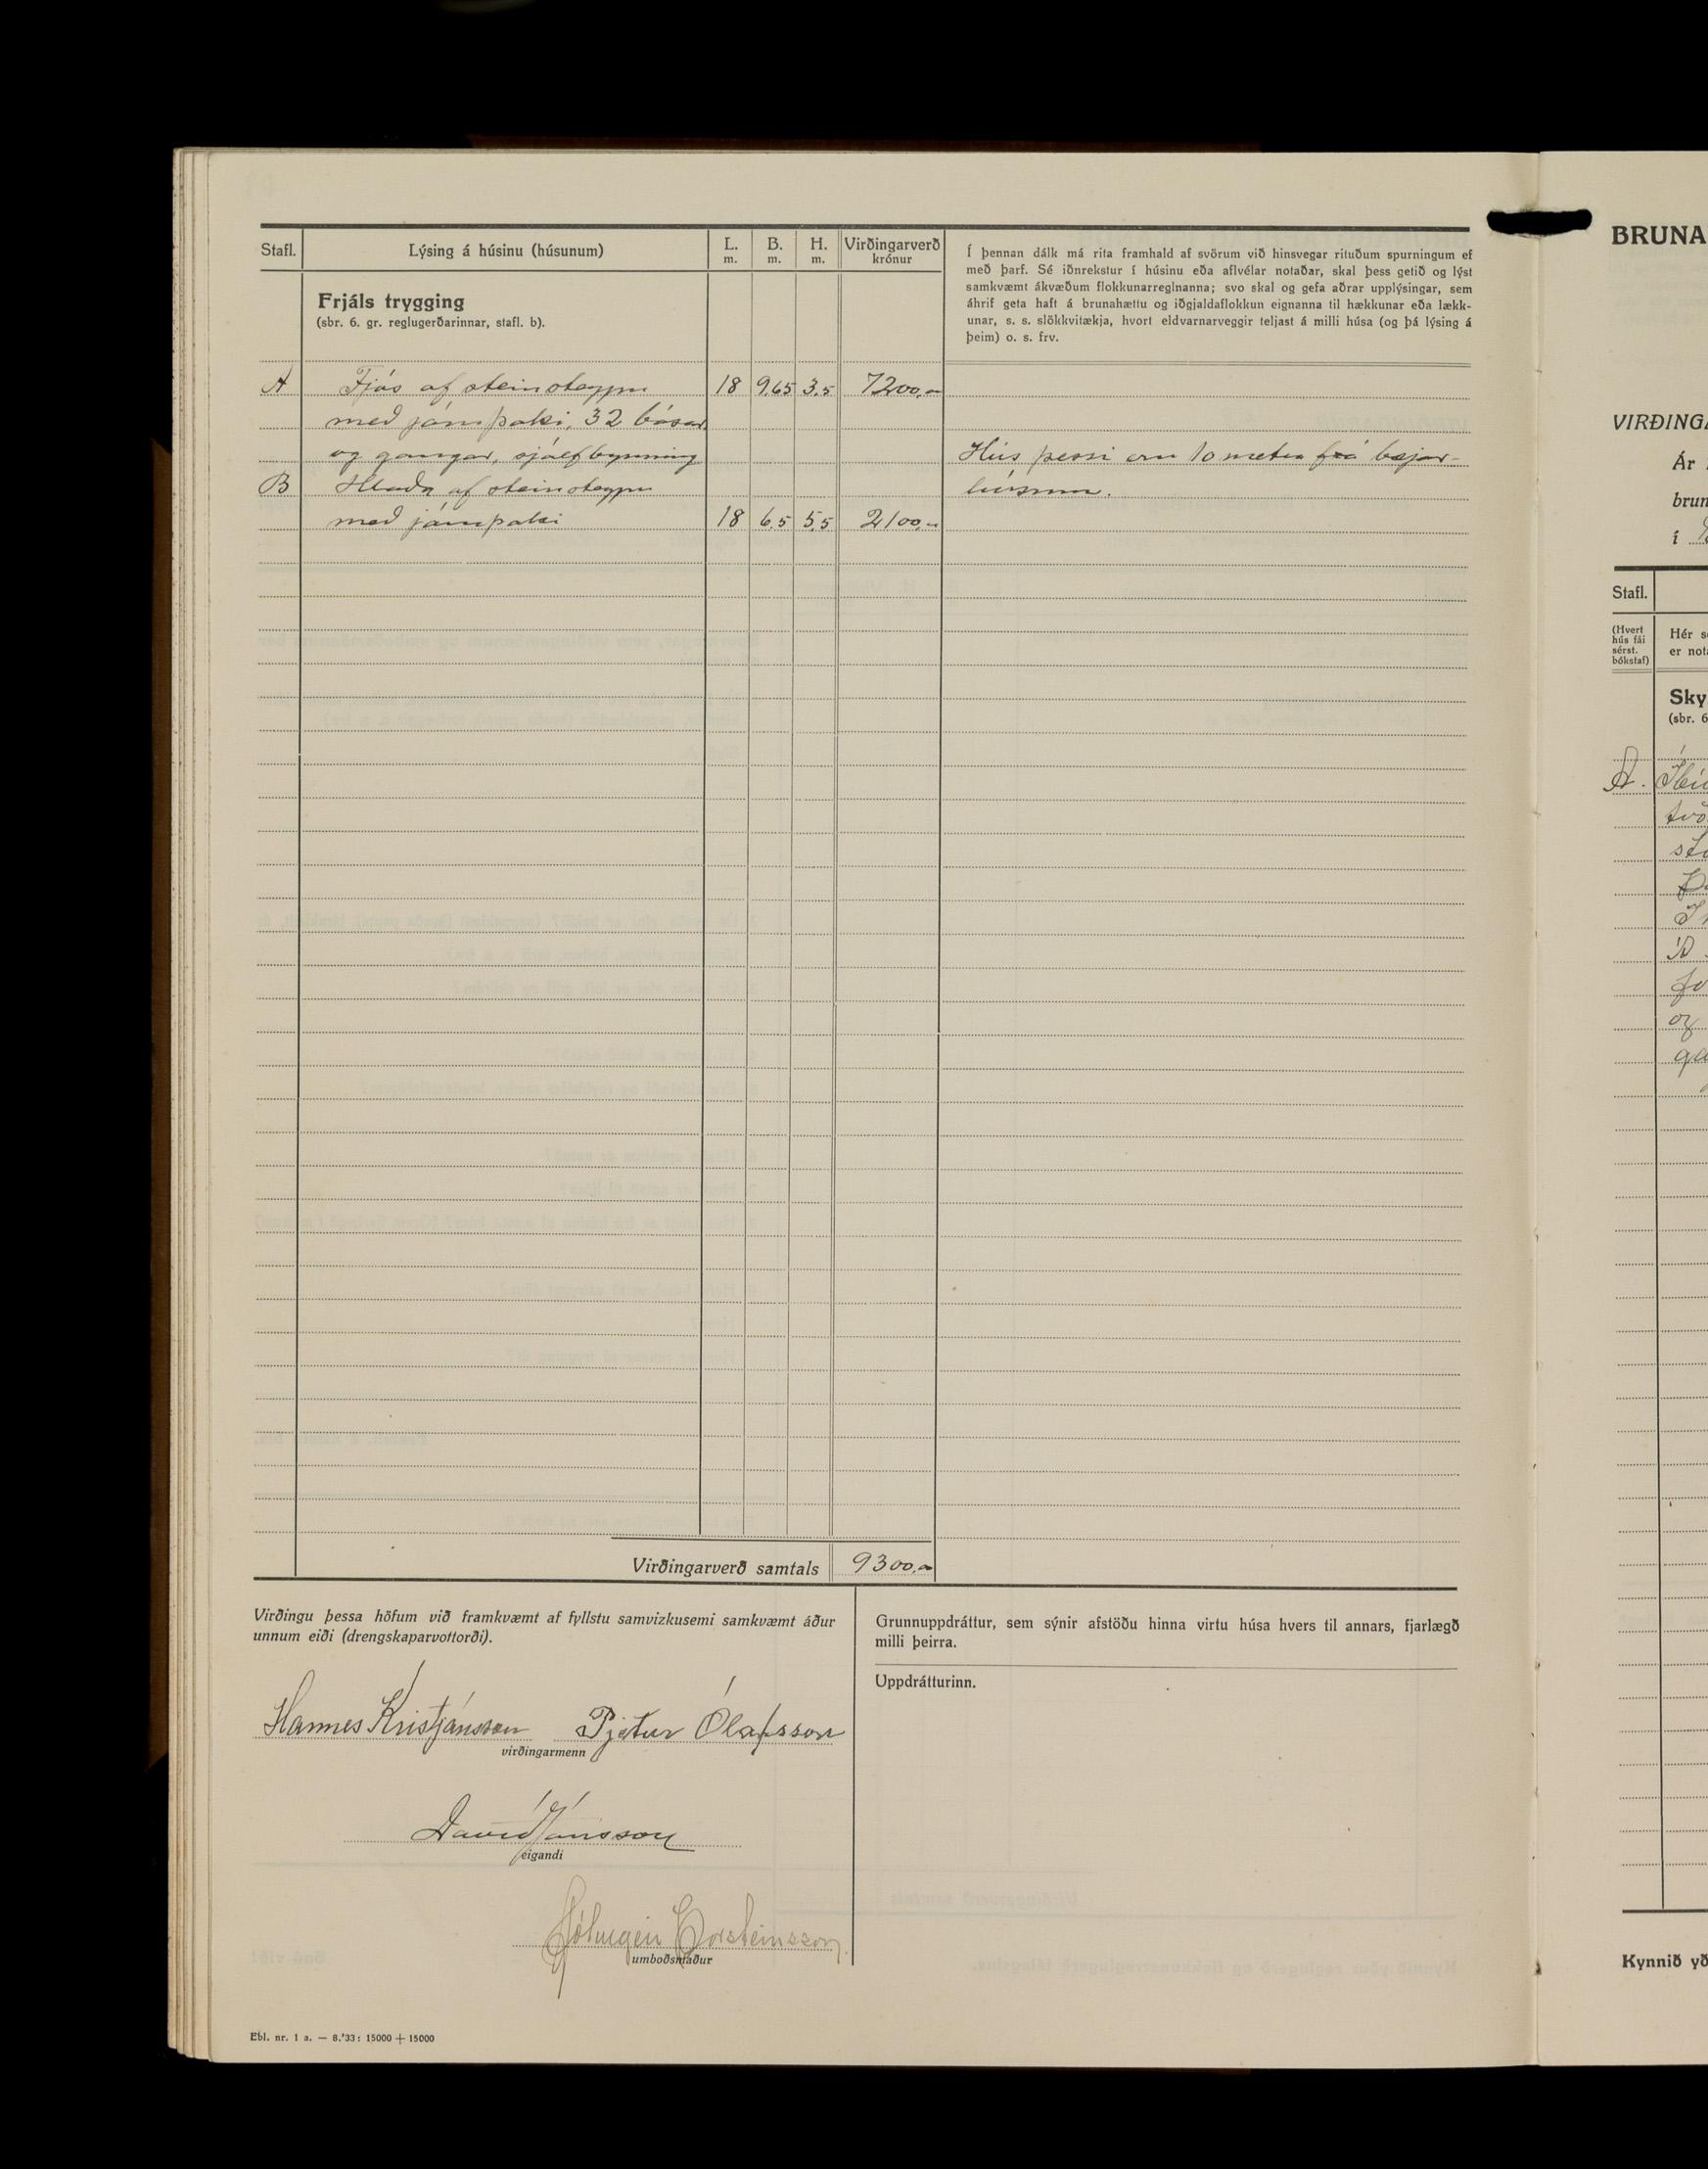 Stafl. Lýsing á húsinu (húsunum) L. m. B. m. H. m. Virðingarverð krónur
Í þennan dálk má rita framhald af svörum við hinsvegar rituðum spurningum ef
með þarf. Sé iðnrekstur í húsinu eða aflvélar notaðar, skal þess getið og lýst
samkvæmt ákvæðum flokkunarreglnanna; svo skal og gefa aðrar upplýsingar, sem
áhrif geta haft á brunahættu og iðgjaldaflokkun eignanna til hækkunar eða lækk-
unar, s. s. slökkvitækja, hvort eldvarnarveggir teljast á milli húsa (og þá lýsing á
þeim) o. s. frv.
Frjáls trygging
(sbr. 6. gr. reglugerðarinnar, stafl. b).
A Fjós af steinsteypu 18 9,65 3,5 7200,-
með járnþaki, 32 básar
og gangar, sjálfbrynning
B Hlaða af steinsteypu
með járnþaki 18 6,5 5,5 2100,-
Hús þessi eru 10 metra frá bæjar-
húsum.
Virðingarverð samtals 9300,-
Virðingu þessa höfum við framkvæmt af fyllstu samvizkusemi samkvæmt áður
unnum eiði (drengskaparvottorði).
Hannes Kristjánsson Pjetur Ólafsson
virðingarmenn
Davíð Jónsson
eigandi
Þorsteinsson
umboðsmaður
Grunnuppdráttur, sem sýnir afstöðu hinna virtu húsa hvers til annars, fjarlægð
milli þeirra.
Uppdrátturinn.
Ebl. nr. 1 a. — 8.'33: 15000 + 15000
BRUNA
VIRÐINGA
Ár
brun
í
Stafl.
(Hvert
hús fái
sérst.
bókstaf)
Hér s
er nota
Sky
(sbr. 6
A. Íbú
tvö
og
Kynnið yð